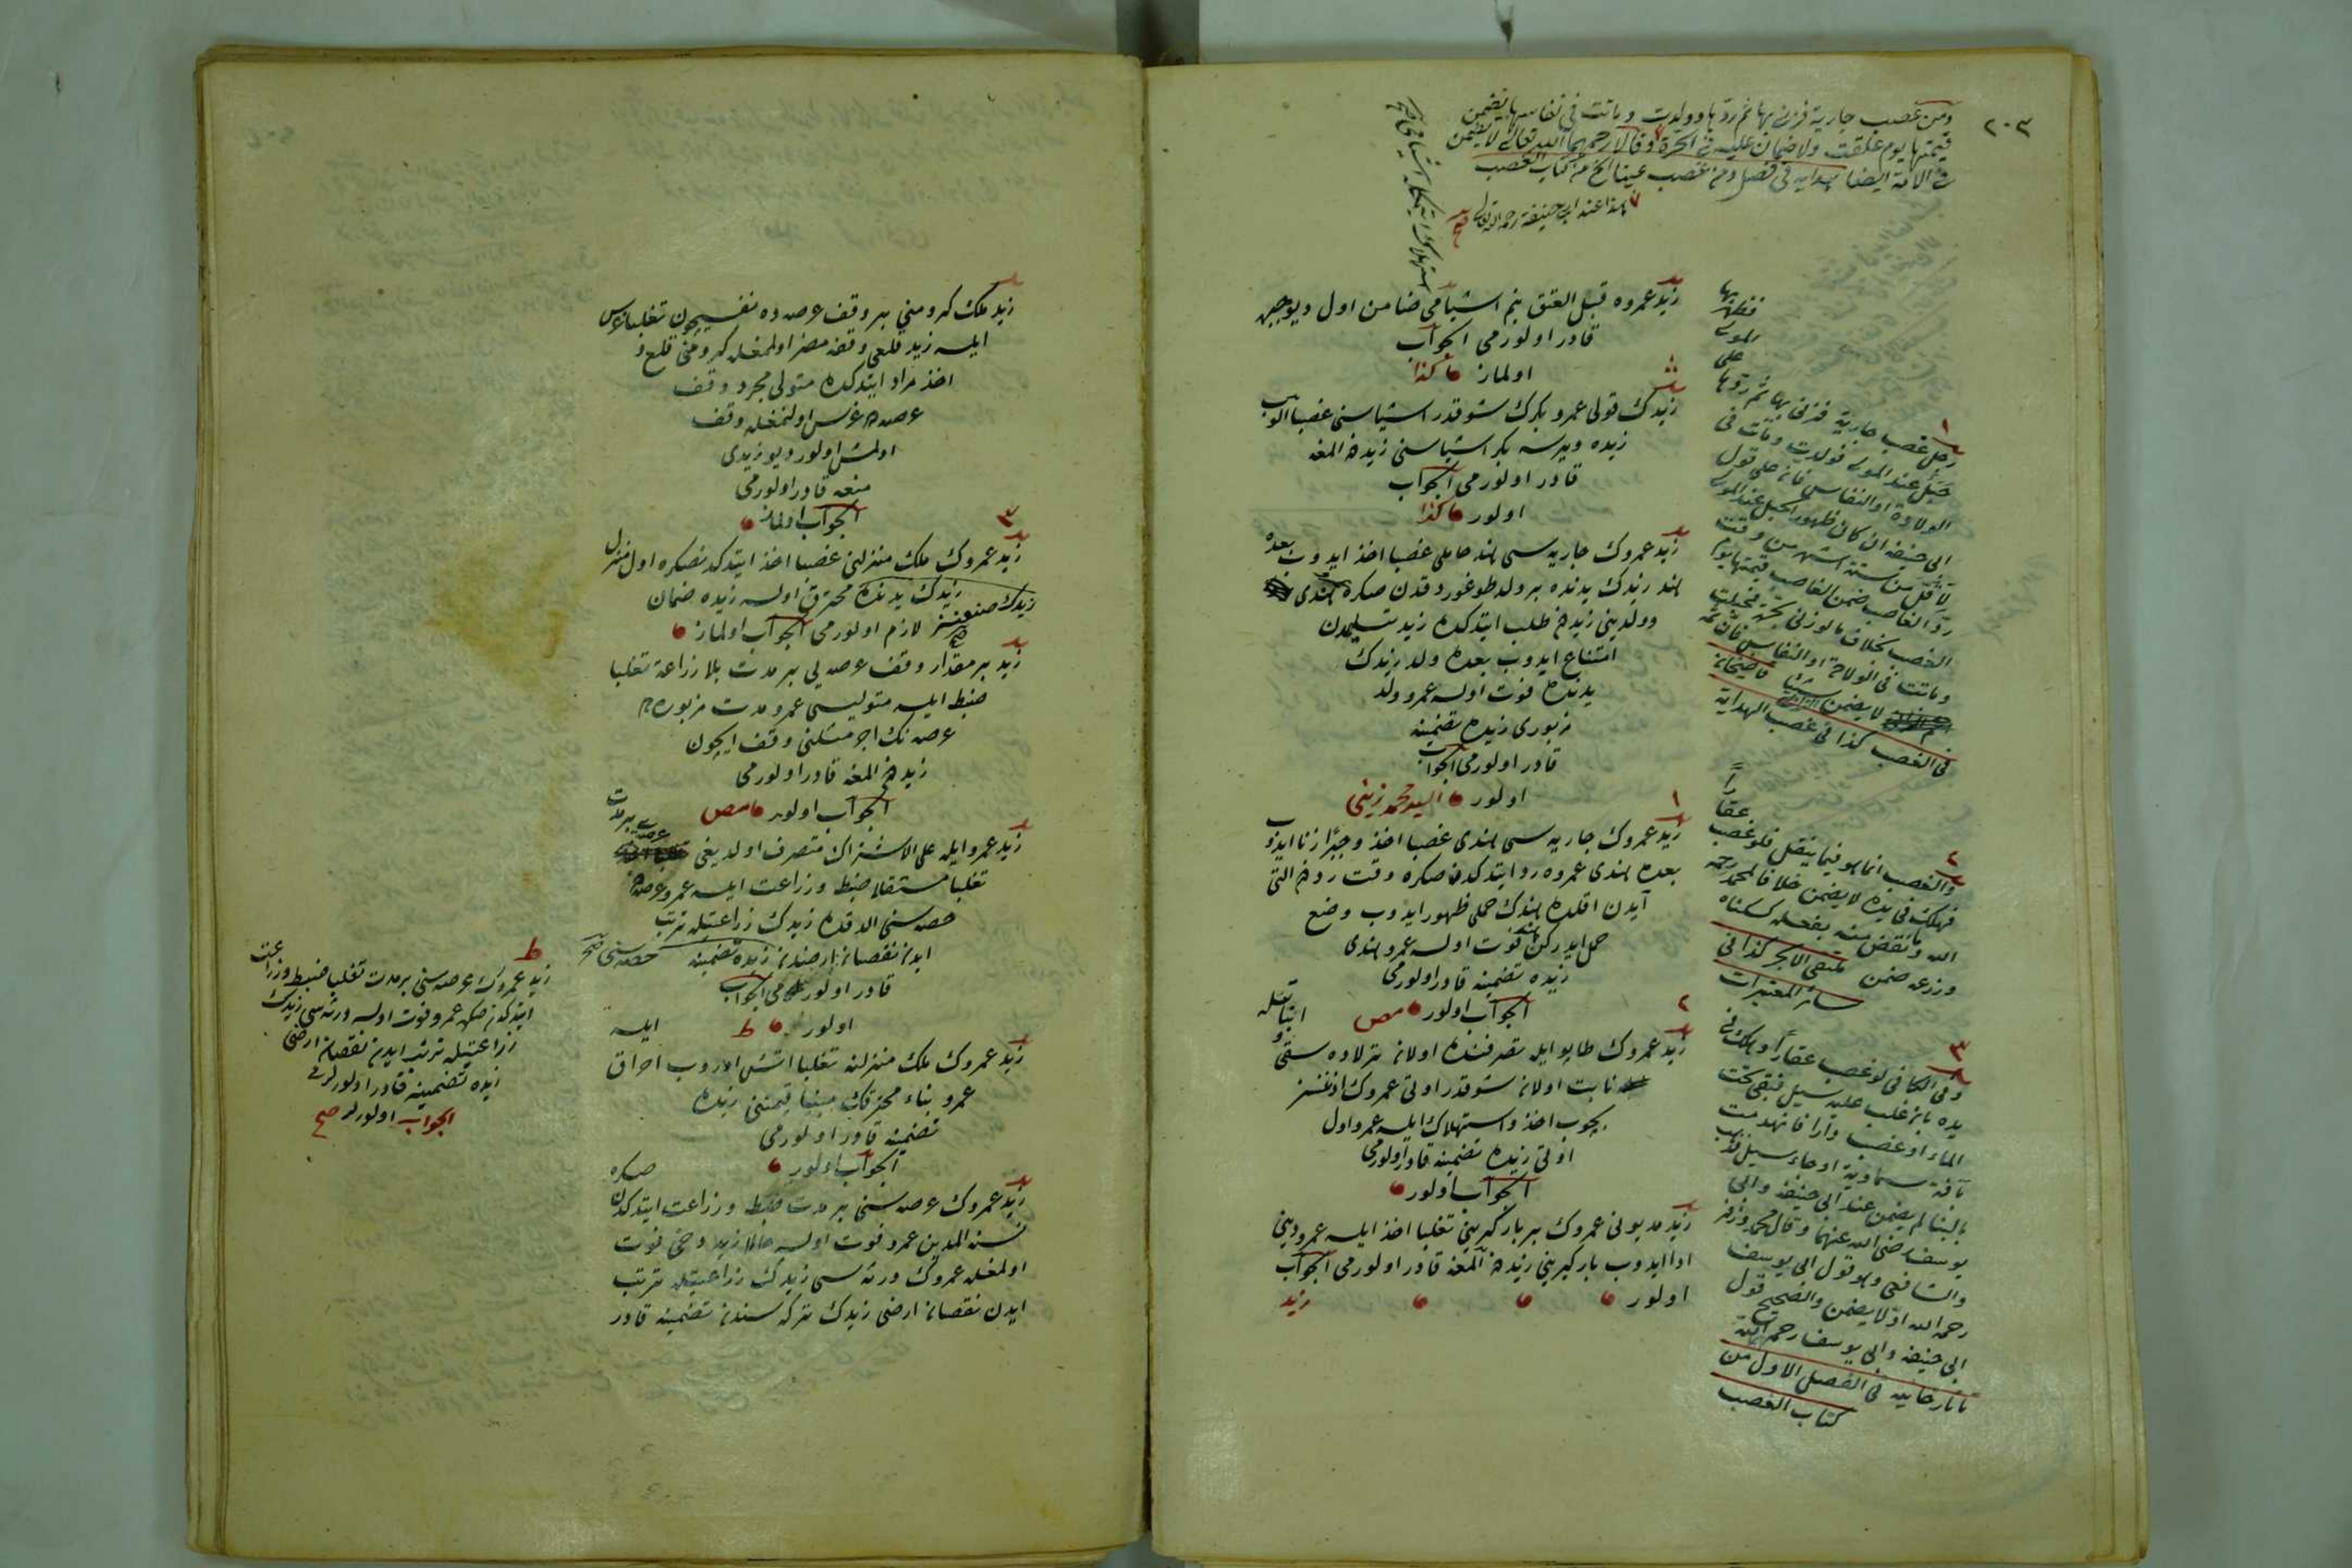 ٢٠٣
ومن غصب جارية فزنى بها ثم ردها وولدت وماتت في نفاسها يضمن
قيمتها يوم علقت ولا ضمان عليه في الحرة وقالا رحمهما الله تعالى لا يضمن
في الامة ايضا هداية في فصل ومن غصب عينا الخ من كتاب الغصب
هذا عند ابي حنيفة رحمه الله تعالى صح
زيد عمروه قبل العتق بنم اشيامي ضامن اول ديو جبره
قادر اولورمى الجواب
اولماز كذا
زيدك قولى عمرو بكرك شو قدر اشياسنى غصبا الوب
زيده ويرسه بكر اشياسنى زيددن المغه
قادر اولورمى الجواب
اولور كذا
زيد عمروك جاريه سى هند حاملى غصبا اخذ ايدوب بعده
هند زيدك يدنده بر ولد طوغوردقدن صكره هندى
و ولدينى زيددن طلب ايتدكده زيد تسليمدن
امتناع ايدوب بعده ولد زيدك
يدنده فوت اولسه عمرو ولد
مزبورى زيده تضمينه
قادر اولورمى الجواب
اولور السيد محمد زينى
١
زيد عمروك جاريه سى هندى غصبا اخذ و جبرا زنا ايدوب
بعده هندى عمروه رد ايتدكدن صكره وقت رددن التى
آيدن اقلده هندك حملى ظهور ايدوب وضع
حمل ايدركن هند فوت اولسه عمرو هندى
زيده تضمينه قادر اولورمى
الجواب اولور مص
٢
زيد عمروك طاپو ايله تصرفنده اولان ترلاده سقى و
نابت اولان شو قدر اوتى عمروك اذنسز
بچوب اخذ و استهلاك ايلسه عمرو اول
اوتى زيده تضمينه قادر اولورمى
الجواب اولور
زيد مديونى عمروك بر باركيرينى تغلبا اخذ ايلسه عمرو دينى
ادا ايدوب باركيرينى زيددن المغه قادر اولورمى الجواب
اولور
زيد
١
رجل غصب جارية فزنى بها ثم ردها
على
المولى
فظهر بها
حبل عند المولى فولدت وماتت فى
الولادة او النفاس فانه على قول
ابى حنيفة ان كان ظهور الحبل عند المولى
لاقل من ستة اشهر من وقت
رد الغاصب ضمن الغاصب قيمتها يوم
الغصب بخلاف ما لو زنى بحرة فحبلت
وماتت فى الولادة او النفاس فانه
لا يضمن قاضيخان
فى الغصب كذا فى غصب الهداية
٢
والغصب انما هو فيما ينقل فلو غصب
عقارا
فهلك فى يده لا يضمن خلافا لمحمد رحمه
الله وما نقص منه بفعله كسكناه
وزرعه ضمن ملتقى الابحر كذا فى
سائر المعتبرات
٣
وفى الكافى لو غصب عقارا وهلك فى
يده بان غلب عليه سيل فبقى تحت
الماء او غصب دارا فانهدمت
بآفة سماوية او جاء سيل فذهب
بالبناء لم يضمن عند ابى حنيفة وابى
يوسف رضى الله عنهما وقال محمد وزفر
والشافعى وهو قول ابى يوسف
رحمه الله اولا يضمن والصحيح قول
ابى حنيفة وابى يوسف رحمهما الله
تاتارخانيه فى الفصل الاول من
كتاب الغصب
زيد ملك كرومنى بر وقف عرصه ده نفسيچون تغلبا غرس
ايلسه زيد قلعى وقفه مضر اولمغله كرومنى قلع و
اخذ مراد ايتدكده متولى مجرد وقف
عصه ده غرس اولنمغله وقف
اولمش اولور ديو زيدى
منعه قادر اولورمى
الجواب اولماز
٣
زيد عمروك ملك منزلنى غصبا اخذ ايتدكدنصكره اول منزل
زيدك يدنده محترق اولسه زيده ضمان
زيدك صنعنسز
لازم اولورمى الجواب اولماز
زيد بر مقدار وقف عرصه يى بر مدت بلا زراعة تغلبا
ضبط ايلسه متوليسى عمرو مدت مزبوره ده
عرصه نك اجر مثلنى وقف ايچون
زيددن المغه قادر اولورمى
الجواب اولور مص
زيد عمرو ايله على الاشتراك متصرف اولديغى
عرصه يى بر مدت
تغلبا مستقلا ضبط و زراعت ايلسه عمرو عرصه دن
حصه سنى الدقده زيدك زراعتيله ترتب
ايدن نقصان ارضدن زيده تضمينه حصه سنى صح
قادر اولورمى الجواب
اولور ط
زيد عمروك ملك منزلنه تغلبا اتش اوروب احراق
ايلسه
عمرو بناء محترقك مبنيا قيمتنى زيده
تضمينه قادر اولورمى
الجواب اولور
زيد عمروك عرصه سنى بر مدت ضبط و زراعت ايتدكدن
صكره
عمرو فوت اولسه حالا زيد دخى فوت
اولمغله عمروك ورثه سى زيدك زراعتيله ترتب
ايدن نقصان ارضى زيدك تركه سندن تضمينه قادر
ط
زيد عمروك عرصه سنى بر مدت تغلبا ضبط و زراعت
ايتدكدن صكره عمرو فوت اولسه ورثه سى زيدك
زراعتيله ترتب ايدن نقصان ارضى
زيده تضمينه قادر اولورلرمى
الجواب اولورلر صح